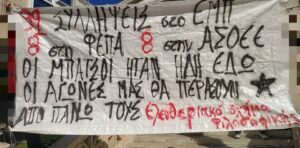 ΣΥΛΛΗΨΕΙΣ στο ΕΜΠ
8 στο ΦΕΠΑ 8 στην ΑΣΟΕΕ
ΟΙ ΜΠΑΤΣΟΙ ΗΤΑΝ ΗΔΗ ΕΔΩ
ΟΙ ΑΓΩΝΕΣ ΜΑΣ ΘΑ ΠΕΡΑΣΟΥΝ
ΑΠΟ ΠΑΝΩ ΤΟΥΣ Ελευθεριακό Σχήμα
Φιλοσοφικής